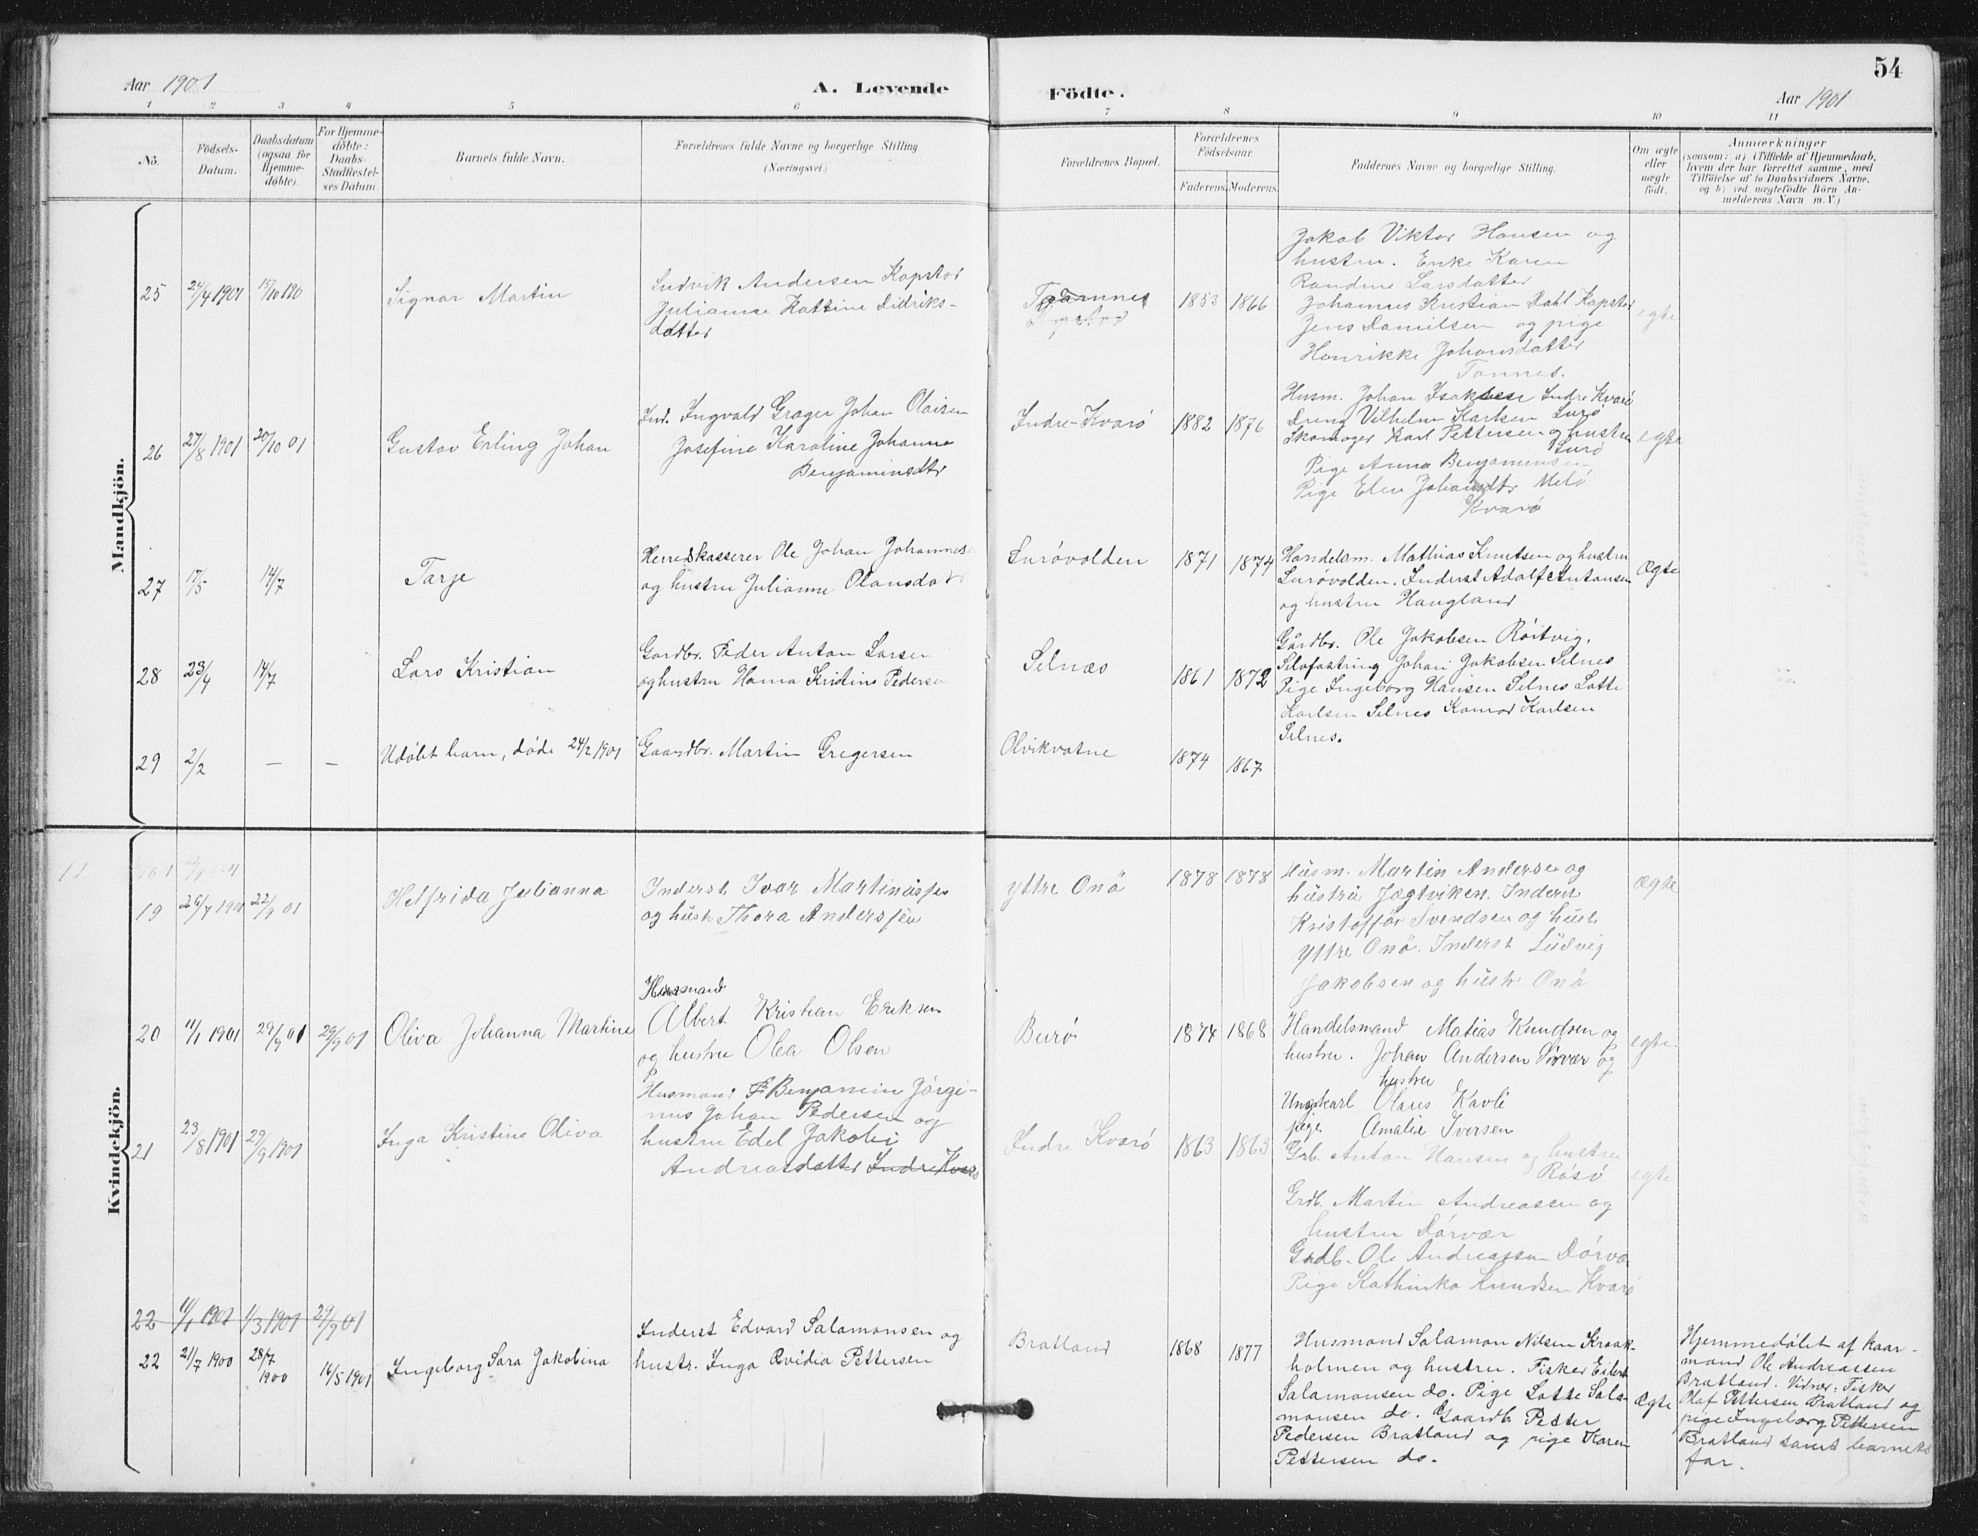 Aar 1901
A. Levende
Födte.
Aar 1901
54
1 2 3 4 5 6 7 8 9 10 11
No.
Födsels-
Datum.
Daabsdatum
(ogsaa for
Hjemme-
döbte).
For Hjemme-
döbte:
Daabs-
Stadfæstel-
ses Datum.
Barnets fulde Navn.
Forældrenes fulde Navne og borgerlige Stilling
(Næringsvei.)
Forældrenes Bopæl.
Forældrenes
Födselsaar.
Faderens. Moderens.
Faddernes Navne og borgerlige Stilling.
Om ægte
eller
uægte
födt.
Anmærkninger
(saasom: a) i Tilfælde af Hjemmedaab,
hvem der har forrettet samme, med
Tilföielse af to Daabsvidners Navne,
og b) ved uægtefödte Börn An-
melderens Navn m. V.)
Mandkjön.
25
24/4 1901
Signar Martin
Ludvik Andersen Kopstad
Julianne Katrine Didriks-
datter
Tonnes
1853
1866
Jakob Viktor Hansen og
hustru. Enke Karen
Randine Larsdatter
Johannes Kristian Dahl Kopstad
Jens Danielsen og pige
Henrikke Johansdatter
Tonnes.
egte
26
27/8 1901
20/10 01
Gustav Erling Johan
Ind. Ingvald Grager Johan Olaisen
Josefine Karoline Johanne
Benjaminsdtr
Indre-Kvarö
1882
1876
Husm. Johan Isaksen Indre Kvarö
Dreng Vilhelm Karlsen Lurö
Skomager Karl Pettersen og hustru
Lurö
Pige Anna Benjaminsen
Pige Elen Johansdtr Melö
Kvarö
egte
27
17/5
14/7
Tarje
Herredskasserer Ole Johan Johannes
og hustru Julianne Olausdatr
Lurövolden
1871
1874
Handelsm. Mathias Knutsen og hustru
Lurövolden. Inderst Adolf Antonsen
og hustru Haugland
Ægte
28
23/4
14/7
Lars Kristian
Gardbr. Peder Anton Larsen
og hustru Hanna Kristine Pedersen
Selnæs
1861
1872
Gårdbr. Ole Jakobsen Röitvig.
Selnes
Pige Ingeborg Hansen Selnes Lotte
Karlsen Selnes Konrad Karlsen
Selnes.
29
2/2
—
—
Udöbt barn, döde 24/2 1901
Gaardbr. Martin Gregersen
Olvikvatne
1874
1867
Kvindekjön.
19
26/7 1901
22/9 01
Helfrida Julianna
Inderst Ivar Martinussen
og hustr Thora Andersen
Yttre Onö
1878
1878
Husm. Martin Andersen og
hustru Jægtviken. Inderst
Kristoffer Svendsen og hustr
Yttre Onö. Inderst Ludvig
Jakobsen og hustr Onö
Ægte
20
11/1 1901
29/9 01
29/9 01
Oliva Johanna Martine
Husmand
Albert Kristian Eriksen
og hustru Olea Olsen
Burö
1874
1868
Handelsmand Matias Knudsen og
hustru. Johan Andersen Sörvær og
hustru
Ungkarl Olaus Kavli
pige Amalie Iversen
egte.
21
23/8 1901
29/9 1901
Inga Kristine Oliva
Husmand Benjamin Jörgi-
nus Johan Pedersen og
hustru Edel Jakobi
Andreasdatter Indre Kvarö
Indre Kvarö
1863
1863
Grb. Anton Hansen og hustru
Rösö
Grdb. Martin Andreassen og
hustru Dörvær
Gadb. Ole Andreassen Dörvær
Pige Kathinka Knudsen Kvarö
egte
22
11/1 1901
1/3 1901
29/9 01
22
21/7 1900
28/7 1900
16/5 1901
Ingeborg Sara Jakobina
Inderst Edvard Salamonsen og
hustr. Inga Ovidia Pettersen
Bratland
1868
1877
Husmand Salamon Nilsen Kraak-
holmen og hustru. Fisker Eilert
Salamonsen do. Pige Lotte Sala-
monsen do. Gaardb Petter
Pedersen Bratland og pige Karen
Pettersen do.
Ægte
Hjemmedöbt af kaar-
mand Ole Andreassen
Bratland. Vidner: Fisker
Olaf Pettersen Bratland og
pige Ingeborg Pettersen
Bratland samt barnets
far.